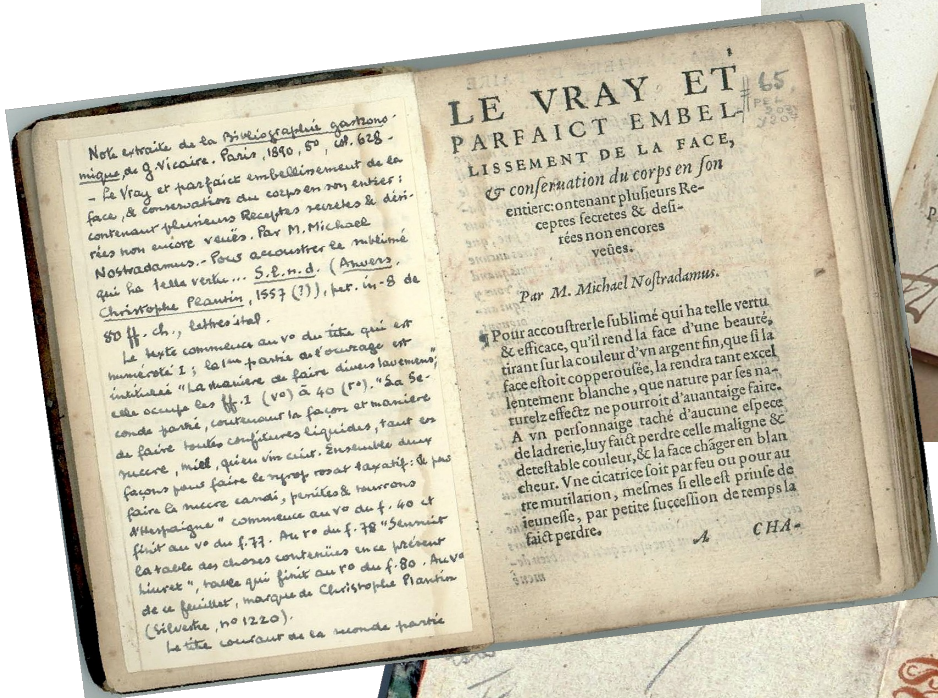 Note extraite de la Bibliographie gastrono-
mique, de G. Vicaire. Paris, 1890, 8°, col. 628.
- Le Vray et parfaict embellissement de la
face, & conservation du corps en son entier:
contenant plusieurs Receptes secretes & dési-
rées non encore veuës. Par M. Michael
Nostradamus. - Pour accoustrer le sublimé
qui ha telle vertu... S.l.n.d. (Anvers,
Christophe Plantin, 1557 (?)), pet. in-8 de
80 ff. ch., lettres ital.
Le texte commence au v° du titre qui est
numéroté 1; la 1ère partie de l'ouvrage est
intitulée "La maniere de faire divers lavemens;
elle occupe les ff. 1 (v°) à 40 (r°). "La Se-
conde partie, contenant la façon et maniere
de faire toutes confitures liquides, tant en
succre, miel, qu'en vin cuit. Ensemble deux
façons pour faire le syrop rosat laxatif: & pour
faire le succre candi, penites & tourrons
d'Hespaigne" commence au v° du f. 40 et
finit au v° du f. 77. Au r° du f. 78 "Senssuit
la table des choses contenües en ce présent
Liuret", table qui finit au r° du f. 80. Au v°
de ce feuillet, marque de Christophe Plantin
(Silvestre, n° 1220).
Le titre courant de la seconde partie
65
LE VRAY ET
PARFAICT EMBEL-
LISSEMENT DE LA FACE,
& conseruation du corps en son
entier:contenant plusieurs Re-
ceptes secretes & desi-
rées non encores
veües.
Par M. Michael Nostradamus.
Pour accoustrer le sublimé qui ha telle vertu
& efficace, qu'il rend la face d'une beauté,
tirant sur la couleur d'vn argent fin, que si la
face estoit copperousée, la rendra tant excel
lentement blanche, que nature par ses na-
turelz effectz ne pourroit d'auantaige faire.
A vn personnaige taché d'aucune espece
de ladrerie, luy faict perdre celle maligne &
detestable couleur, & la face chãger en blan
cheur. Vne cicatrice soit par feu ou pour au
tre mutilation, mesmes si elle est prinse de
ieunesse, par petite succession de temps la
faict perdre.
A CHA-